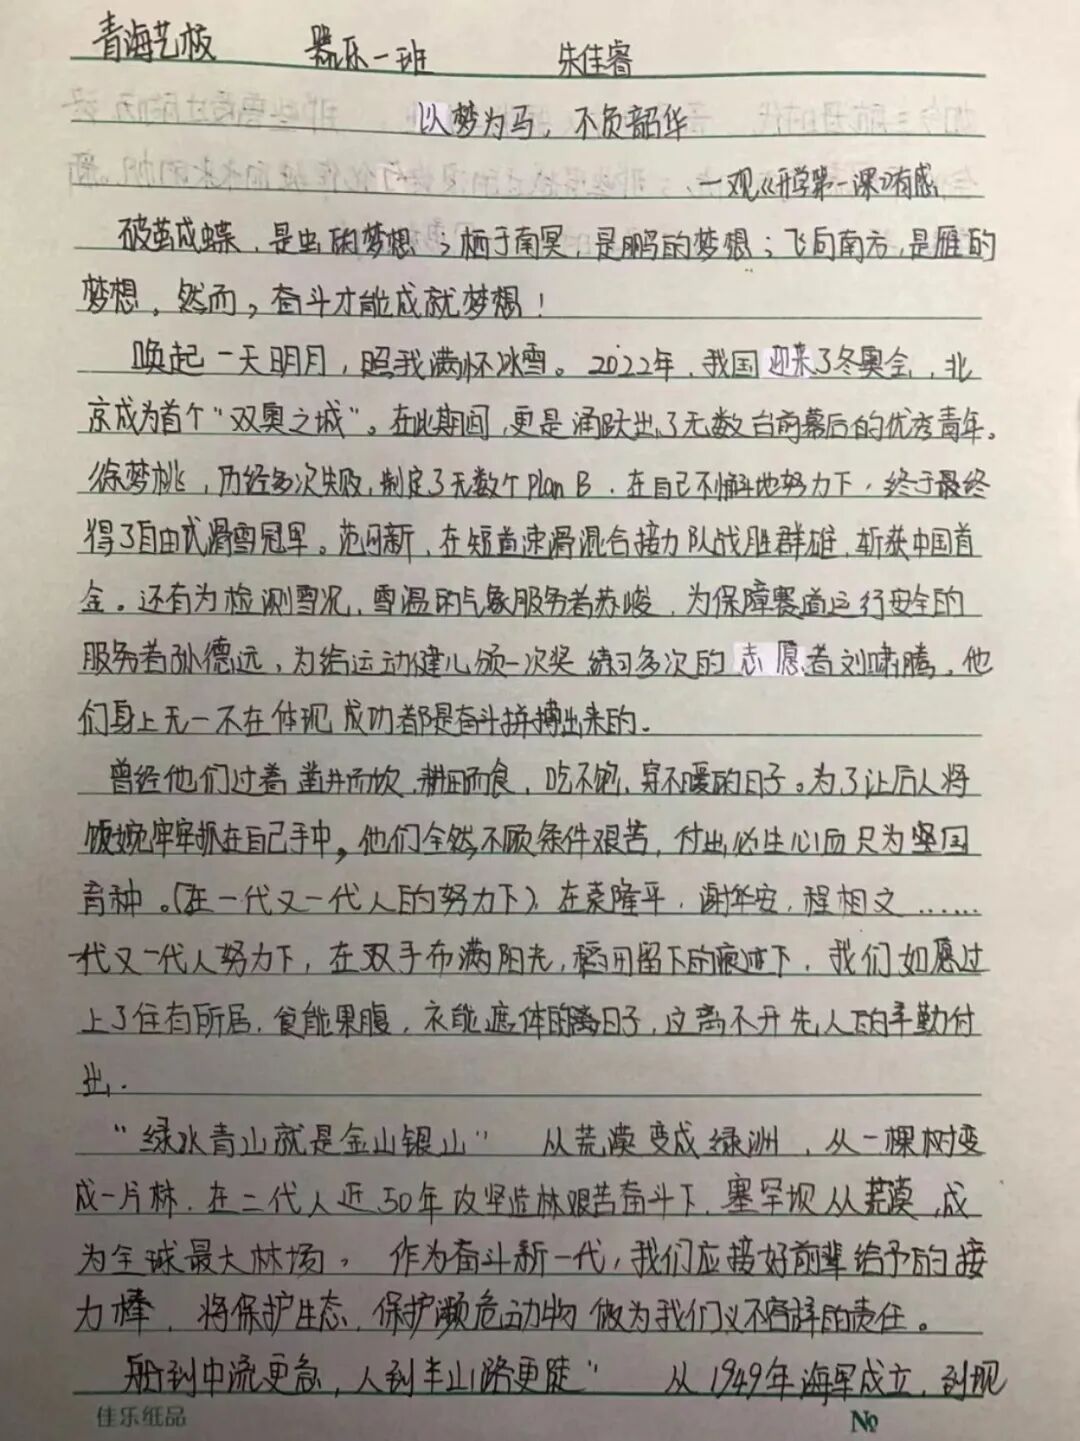 青海艺校 器乐一班 朱佳睿
以梦为马，不负韶华
—观《开学第一课》有感
破茧成蝶，是虫的梦想；栖于南冥，是鹏的梦想；飞向南方，是雁的
梦想。然而，奋斗才能成就梦想！
唤起一天明月，照我满怀冰雪。2022年，我国迎来了冬奥会，北
京成为首个“双奥之城”。在此期间，更是涌跃出了无数台前幕后的优秀青年。
徐梦桃，历经多次失败，制定了无数个Plan B，在自己不懈地努力下，终于最终
得了自由式滑雪冠军。范可新，在短道速滑混合接力队战胜群雄，斩获中国首
金。还有为检测雪况，雪温的气象服务者苏峻，为保障赛道运行安全的
服务者孙德远，为给运动健儿颁一次奖练习多次的志愿者刘啸腾。他
们身上无一不在体现成功都是奋斗拼搏出来的。
曾经他们过着凿井而饮，耕田而食，吃不饱，穿不暖的日子。为了让后人将
饭碗牢牢抓在自己手中，他们全然不顾条件艰苦，付出必生心血只为坚国
育种。(在一代又一代人的努力下)，在袁隆平，谢华安，程相文……
代又一代人努力下，在双手布满阳光，稻田留下的痕迹下，我们如愿过
上了住有所居，食能果腹，衣能遮体的日子，这离不开先人的辛勤付
出.
“绿水青山就是金山银山” 从荒漠变成绿洲，从一棵树变
成一片林，在三代人近50年攻坚造林艰苦奋斗下，塞罕坝从荒漠，成
为全球最大林场。作为奋斗新一代，我们应接好前辈给予的接
力棒，将保护生态，保护濒危动物做为我们义不容辞的责任。
船到中流更急，人到半山路更陡” 从1949年海军成立，到现
佳乐纸品 №